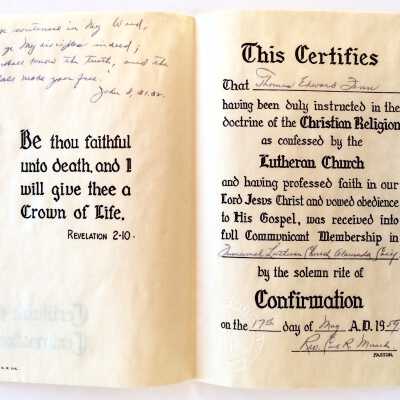 continue in My Word,
ye My disciples indeed;
shall know the truth, and the
shall make you free."
John 8, 31.32.
Be thou faithful
unto death, and I
will give thee a
Crown of Life.
REVELATION 2-10.
This Certifies
That Thomas Edward
having been duly instructed in the
doctrine of the Christian Religion
as confessed by the
Lutheran Church
and having professed faith in our
Lord Jesus Christ and vowed obedience
to His Gospel, was received into
full Communicant Membership in
Immanuel Lutheran Church Alameda Calif.
by the solemn rite of
Confirmation
on the 17th day of May A.D. 1959
Rev. R.
PASTOR.